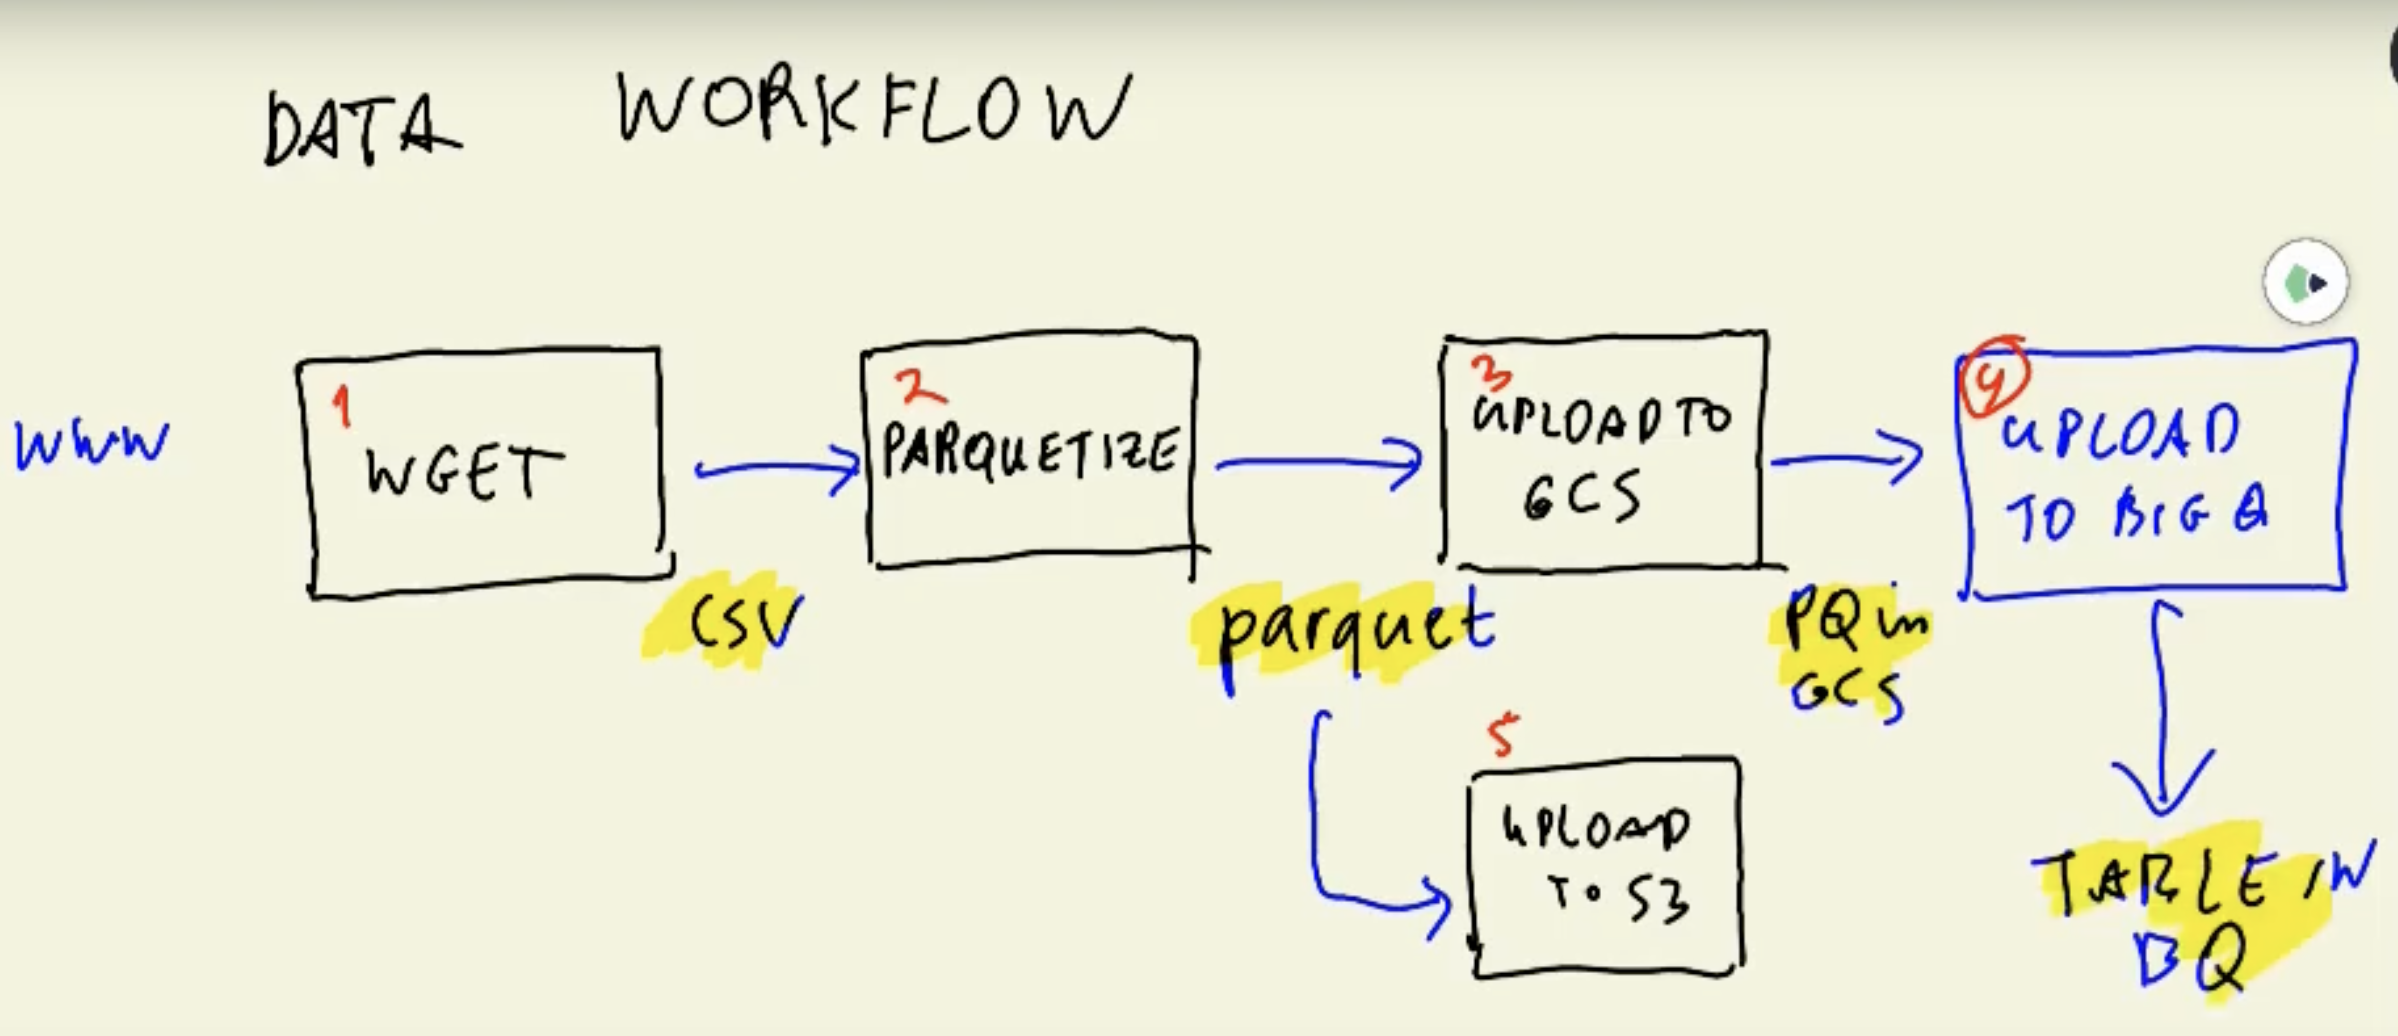 DATA WORKFLOW
WWW
1
WGET
CSV
2
PARQUETIZE
parquet
3
UPLOAD TO
GCS
PQ in
GCS
4
UPLOAD
TO BIG Q
TABLE IN
BQ
5
UPLOAD
TO S3